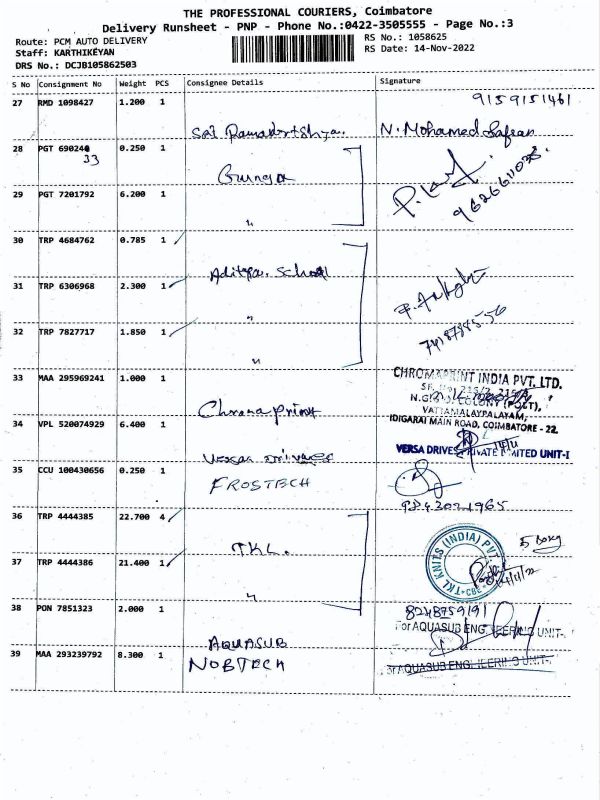 THE PROFESSIONAL COURIERS, Coimbatore
Delivery Runsheet - PNP - Phone No.:0422-3505555 - Page No.:3
Route: PCM AUTO DELIVERY
Staff: KARTHIKEYAN
DRS No.: DCJB105862503
RS No.: 1058625
RS Date: 14-Nov-2022
S No Consignment No Weight PCS Consignee Details Signature
27 RMD 1098427 1.200 1
9159151461
N. Mohamed Safean
28 PGT 690240 0.250 1
33
29 PGT 7201792 6.200 1
"
30 TRP 4684762 0.785 1
Aditya School
31 TRP 6306968 2.300 1
"
32 TRP 7827717 1.850 1
"
33 MAA 295969241 1.000 1
CHROMAPRINT INDIA PVT. LTD.
VATTAMALAYPALAYAM,
IDIGARAI MAIN ROAD, COIMBATORE - 22.
Chromaprint
34 VPL 520074929 6.400 1
VERSA DRIVES PRIVATE LIMITED UNIT-I
Versa Drives
35 CCU 100430656 0.250 1
FROSTECH
36 TRP 4444385 22.700 4
TKL.
5 Boxy
TKL KNITS (INDIA) PVT
CBE
37 TRP 4444386 21.400 1
"
38 PON 7851323 2.000 1
8248759191
For AQUASUB ENGINEERING UNIT-
AQUASUB
39 MAA 293239792 8.300 1
NOBTECH
For AQUASUB ENGINEERING UNIT-